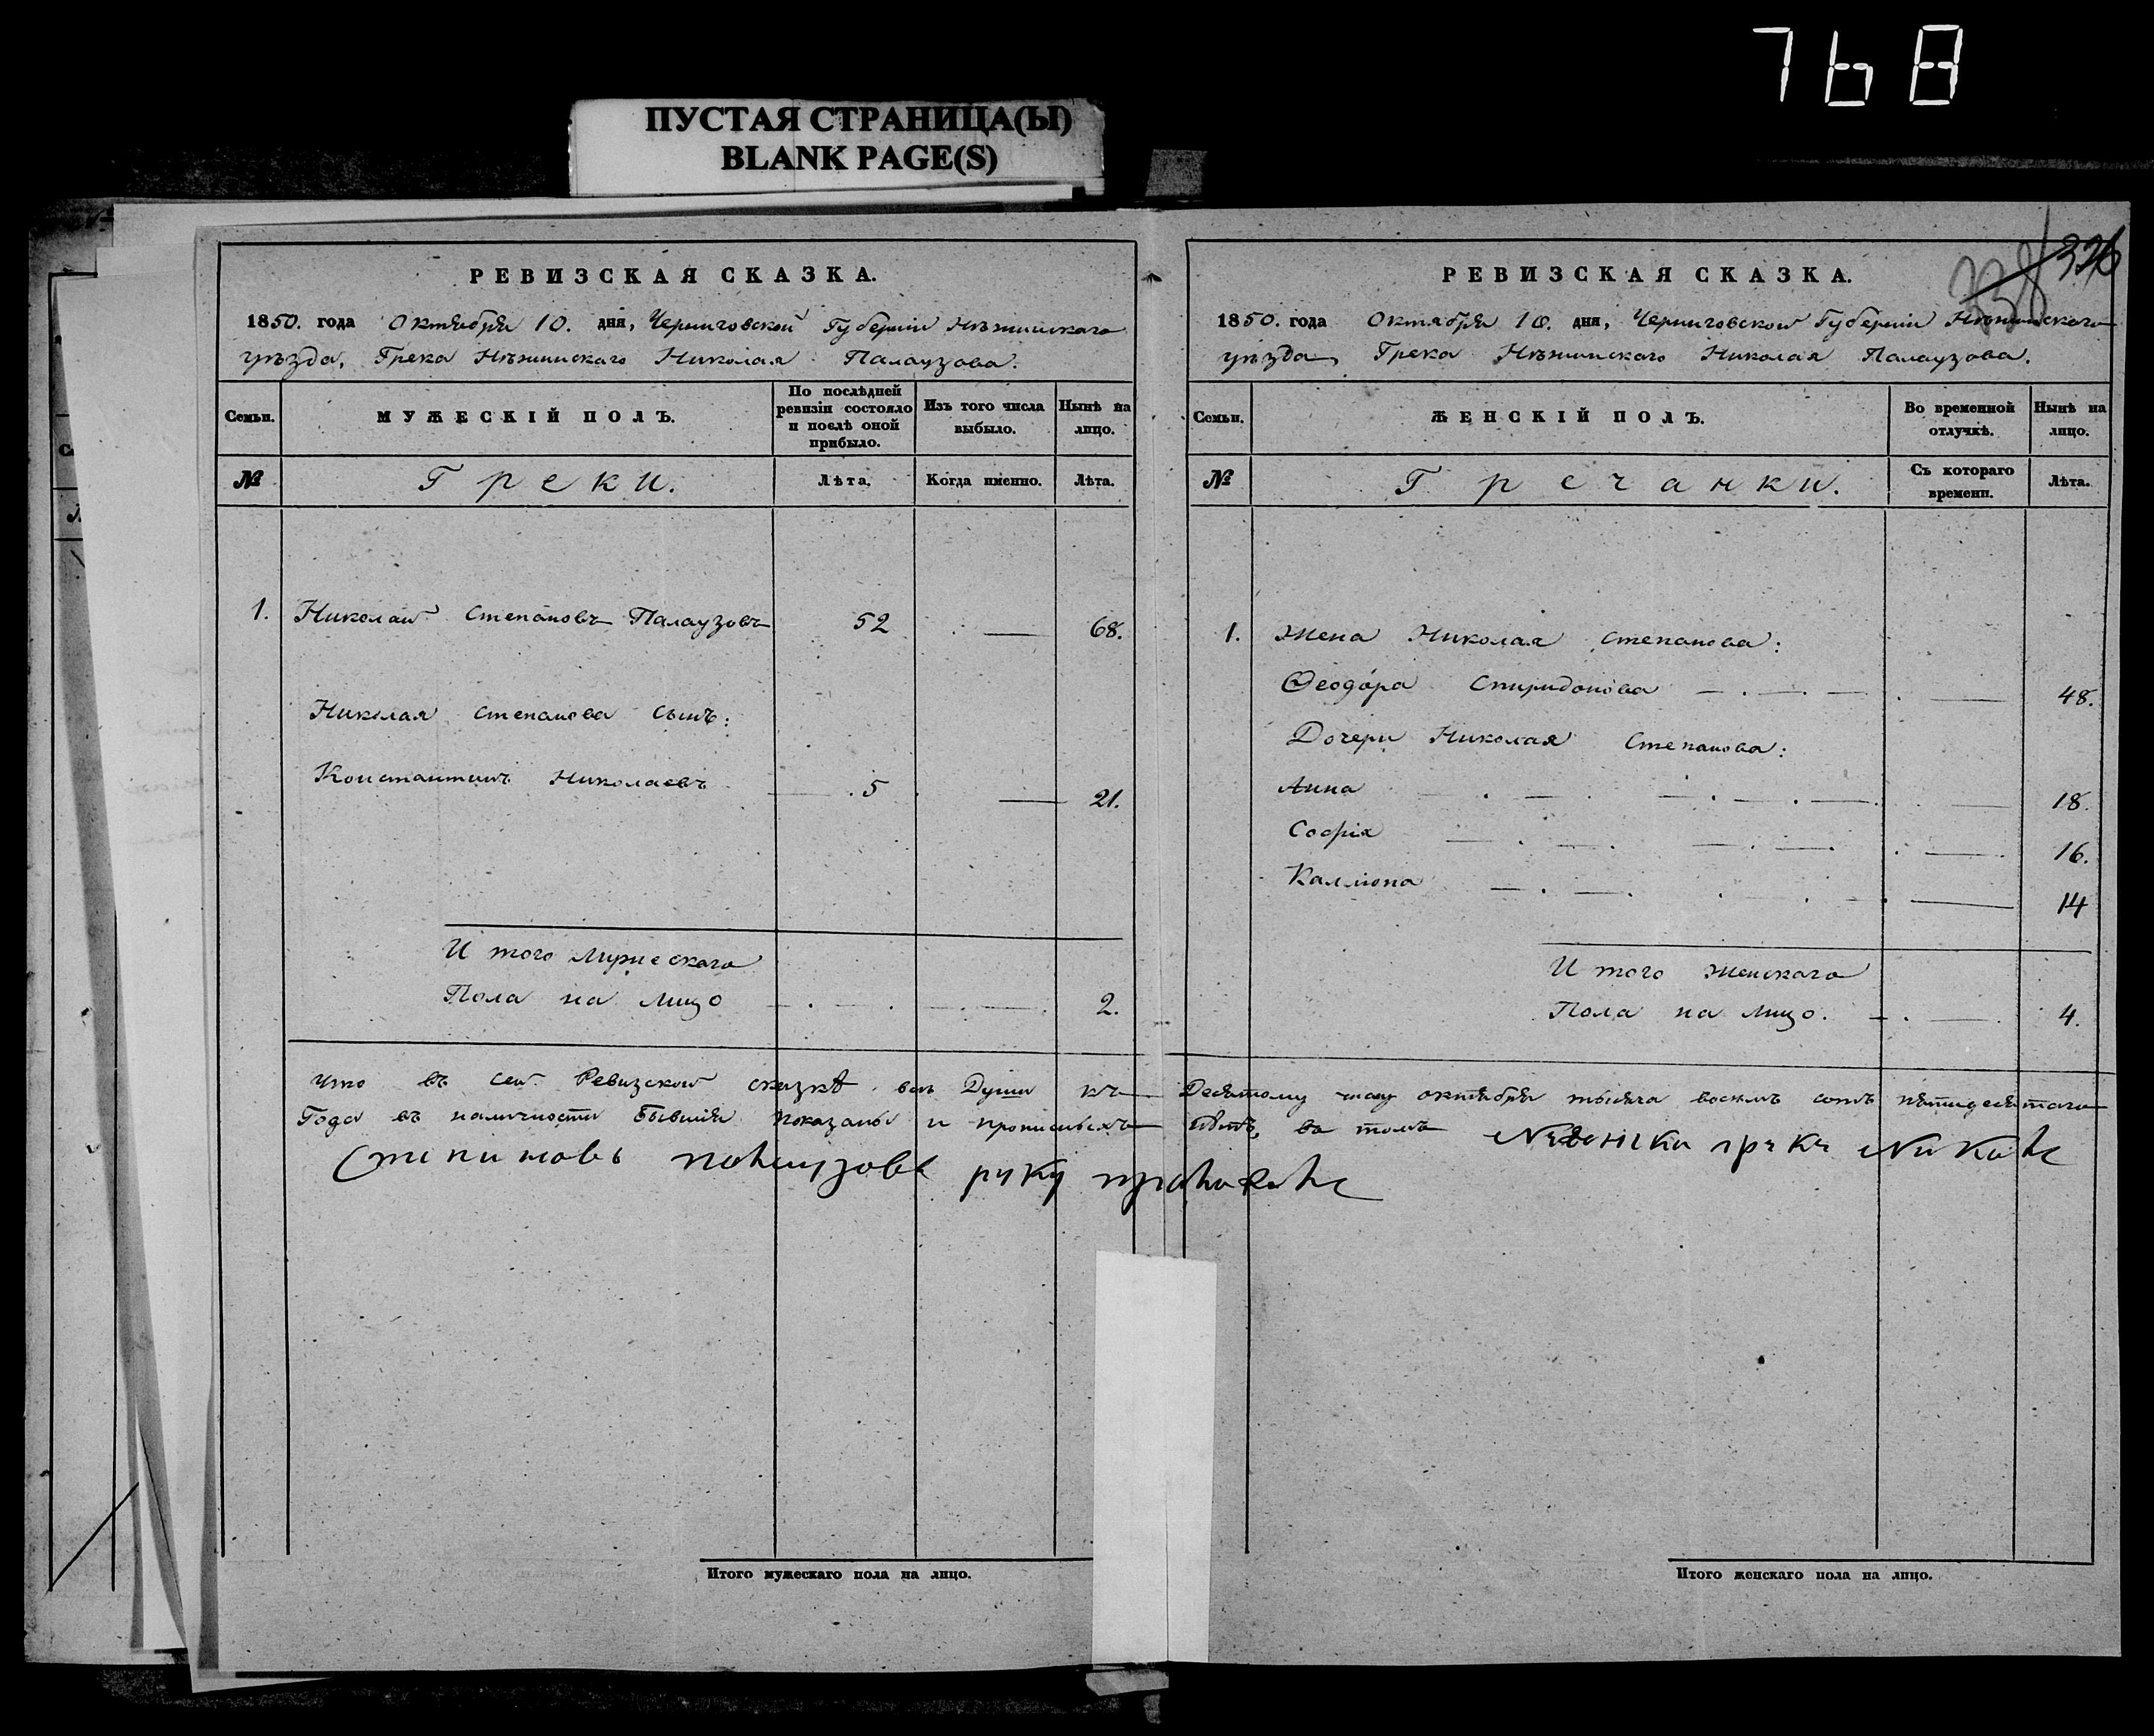 768
ПУСТАЯ СТРАНИЦА(Ы)
BLANK PAGE(S)
РЕВИЗСКАЯ СКАЗКА.
1850. года Октября 10. дня, Черниговской Губерніи Нѣжинскаго
уѣзда, Грека Нѣжинскаго Николая Палаузова.
Семьи.
МУЖЕСКІЙ ПОЛЪ.
По послѣдней ревизіи состояло и послѣ оной прибыло.
Изъ того числа выбыло.
Нынѣ на лицо.
№
Греки.
Лѣта.
Когда именно.
Лѣта.
1. Николай Степановъ Палаузовъ 52 — 68.
Николая Степанова сынъ:
Константинъ Николаевъ — 5 — 21.
И того Мужескаго
Пола на лицо — 2.
326
РЕВИЗСКАЯ СКАЗКА.
1850. года Октября 10. дня, Черниговской Губерніи Нѣжинскаго
уѣзда, Грека Нѣжинскаго Николая Палаузова.
Семьи.
ЖЕНСКІЙ ПОЛЪ.
Во временной отлучкѣ.
Нынѣ на лицо.
№
Гречанки.
Съ котораго времени.
Лѣта.
1. Жена Николая Степанова:
Ѳеодора Спиридонова — 48.
Дочери Николая Степанова:
Анна — 18.
Софія — 16.
Калліопа — 14
И того Женскаго
Пола на лицо. — 4.
Что въ сей Ревизской сказкѣ всѣ Души къ Десятому числу октября тысяча восемь сотъ пятидесятаго
Года въ наличности бывшія показаны и прописныхъ нѣтъ, въ томъ
Степановъ Палаузовъ руку приложилъ
Итого мужескаго пола на лицо.
Итого женскаго пола на лицо.